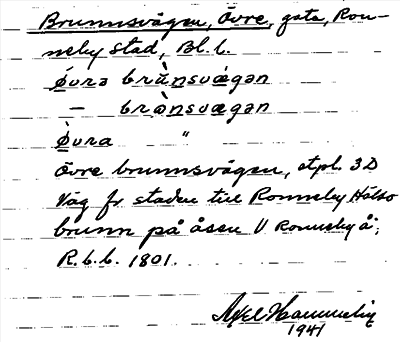 Brunnsvägen, Övre, gata, Ron-
neby stad, Bl. l.
Øvrə brùnsvægən
— brònsvægən
Øvra "
Övre brunnsvägen, etpl. 3D
Väg fr staden till Ronneby Hälso
brunn på åsen V Ronneby å;
R.b.b. 1801.
Axel
1941